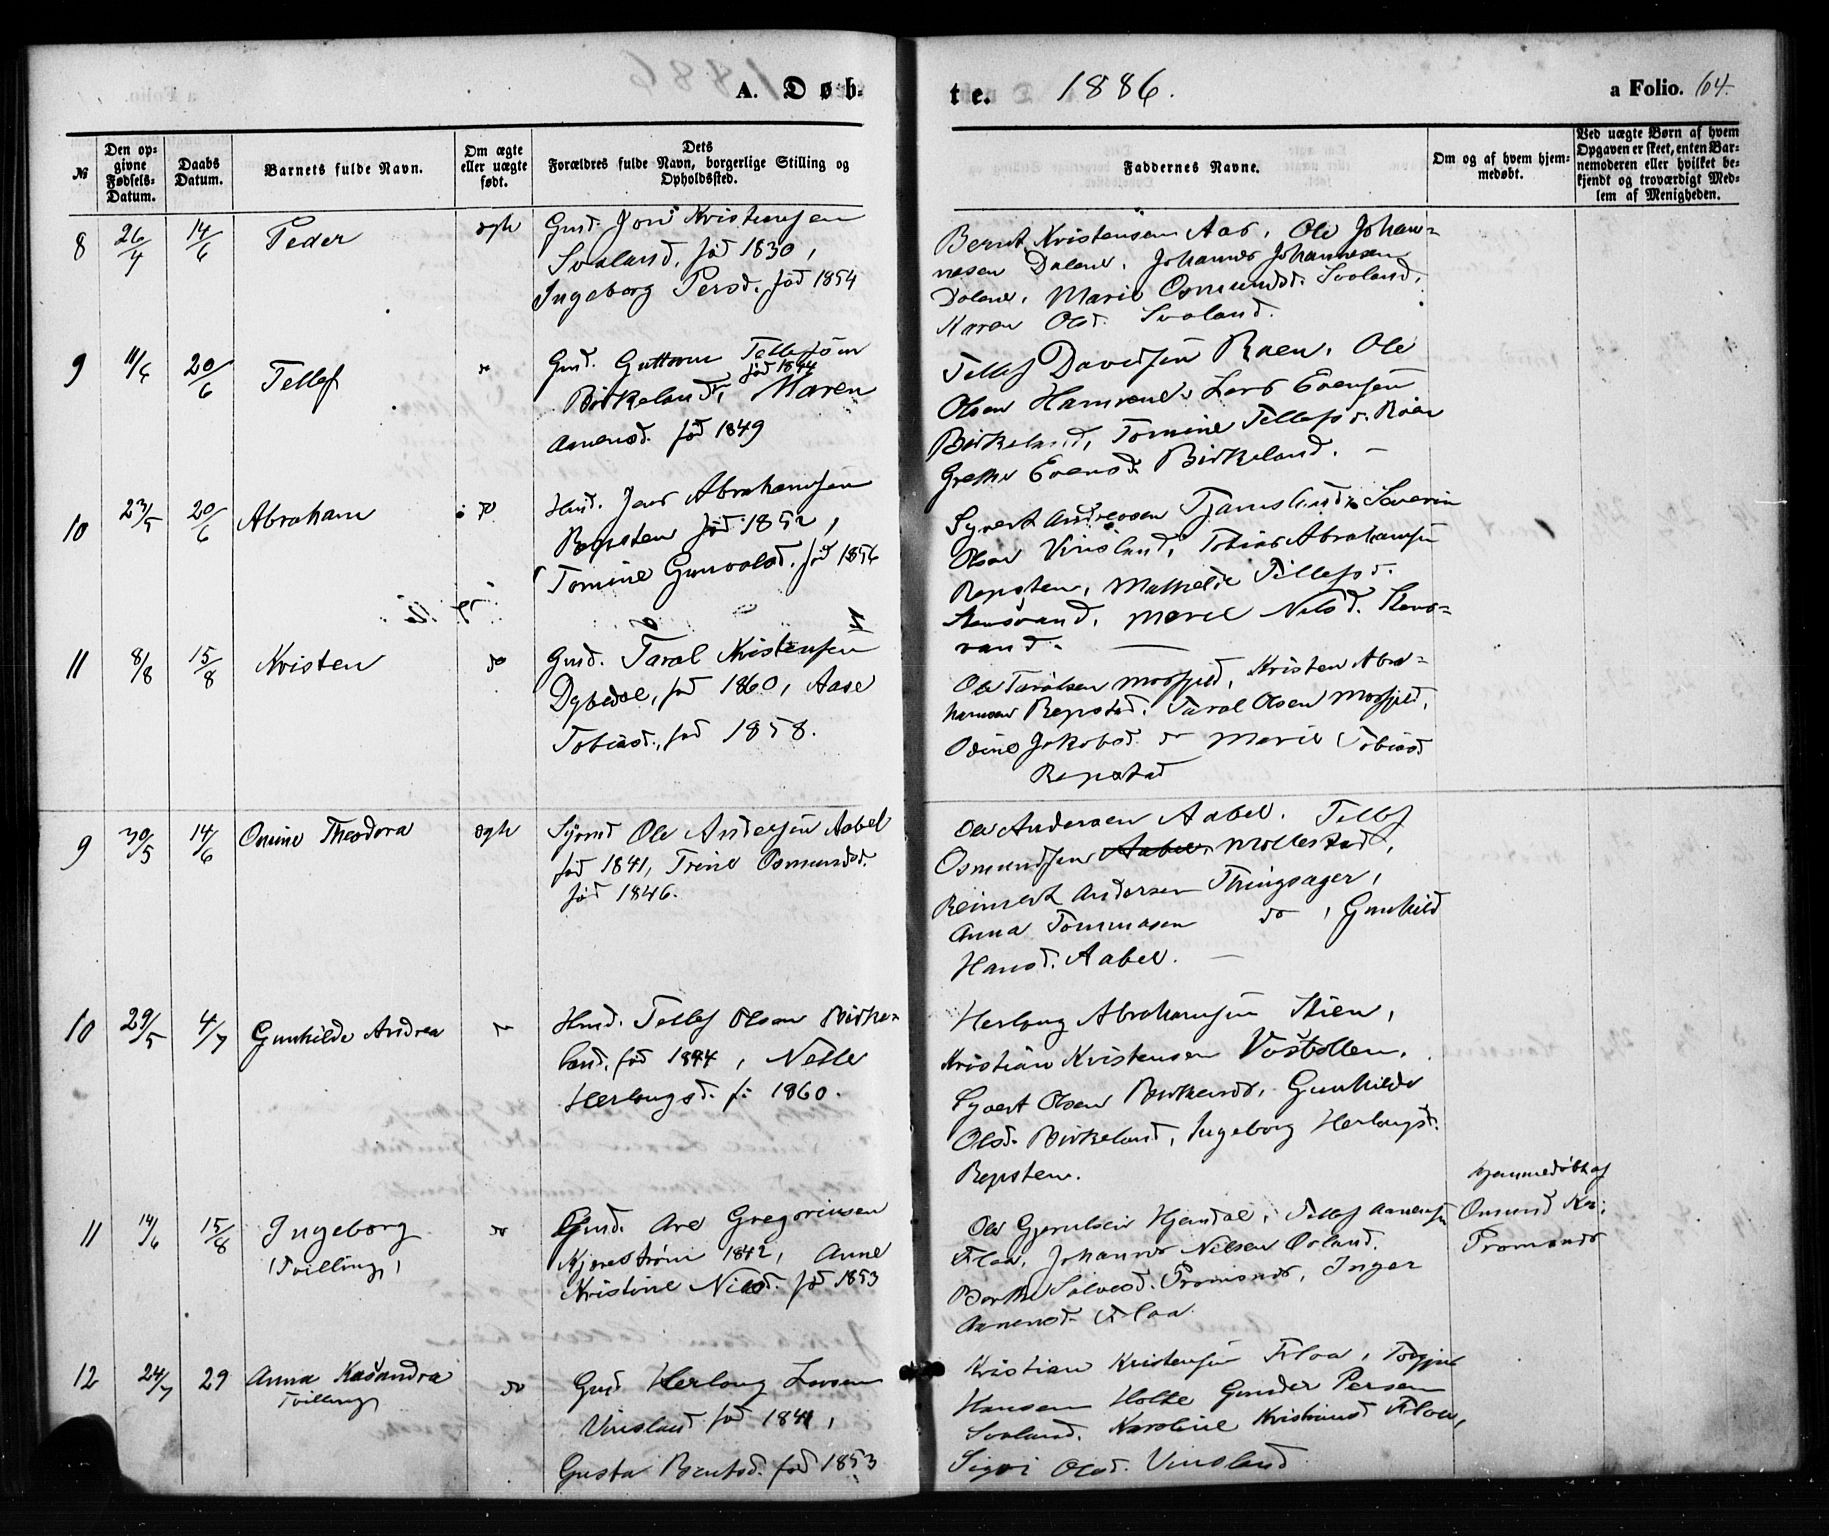 A. Døb-
te. 1886. a Folio. 64.
№ Den op-givne Fødsels-Datum. Daabs Datum. Barnets fulde Navn. Om ægte eller uægte født. Dets Forældres fulde Navn, borgerlige Stilling og Opholdssted.
Faddernes Navne. Om og af hvem hjem-medøbt. Ved uægte Børn af hvem Opgaven er skeet, enten Bar-nemoderen eller hvilket be-kjendt og troværdigt Med-lem af Menigheden.
8 26/4 14/6 Peder ægte Gmd. Jon Kristensen
Svaland, fød 1830,
Ingeborg Persd. fød 1854
Bernt Kristensen Aas, Ole Johan-
nesen Dalene, Johannes Johannesen
Dalene, Marie Osmundsd. Svaland,
Karen Olsd. Svaland.
9 11/6 20/6 Tellef do Gmd. Guttorm Tellefsen
fød 1844
Birkeland, Maren
Aanensd. fød 1849
Tellef Davidsen Roen, Ole
Olsen Hamrene, Lars Evensen
Birkeland, Tomine Tellefsd. Roen
Grethe Evensd. Birkeland. —
10 23/5 20/6 Abraham do Hmd. Jens Abrahamsen
Repsten fød 1852,
Tomine Gunvalsd. fød 1856
Syvert Andreasen Tjamsland, Severin
Olsen Vinsland, Tobias Abrahamsen
Repsten, Mathilde Tellefsd.
Stensvand, Marie Nilsd. Stens-
vand. —
11 8/8 15/8 Kristen do Gmd. Taral Kristensen
Dybedal, fød 1860, Aase
Tobiasd., fød 1858.
Ole Taralsen Mosfjeld, Kristen Abra-
hamsen Repstad, Taral Olsen Mosfjeld,
Odine Jakobsd. do Marie Tobiasd
Repstad
9 30/5 14/6 Omine Theodora ægte Ole Andersen Aabel
fød 1841, Trine Osmundsd.
fød 1846.
Ole Andersen Aabel. Tellef
Osmundsen Aabel, Mollestad,
Reinert Andersen Thingsager,
Anna Tommasen do, Gunhild
Hansd. Aabel. —
10 29/5 4/7 Gunhilde Andrea do Hmd. Tellef Olsen Birke-
land, fød 1844, Nelle
Herlougsd. f: 1860.
Herloug Abrahamsen Stien,
Kristian Kristensen Vaatvollen,
Syvert Olsen Birkenes, Gunhilde
Olsd. Birkeland, Ingeborg Herlougsd.
Repsten.
11 14/6 15/8 Ingeborg do Gmd. Are Gregoriusen
(Tvilling) Kjerestrøm 1842, Anne
Kristine Nilsd. fød 1853
Ole Gjerulsen Hjendal, Tellef Aanensen
Flaa, Johannes Nilsen Øvland,
Berthe Salvesd. Tromsnes, Inger
Aanensd. Flaa.
hjemmedøbt af
Omund Kr.
Tromsnes
12 24/7 29 Anna Kasandra do Gmd Herloug Larsen
Tvilling Vinsland fød 1841,
Gusta Berntsd. fød 1853
Kristian Kristensen Flaa, Torgjus
Hansen Holte Gunder Persen
Svaland, Karoline Kristiansd Flaa,
Sigri Olsd. Vinsland